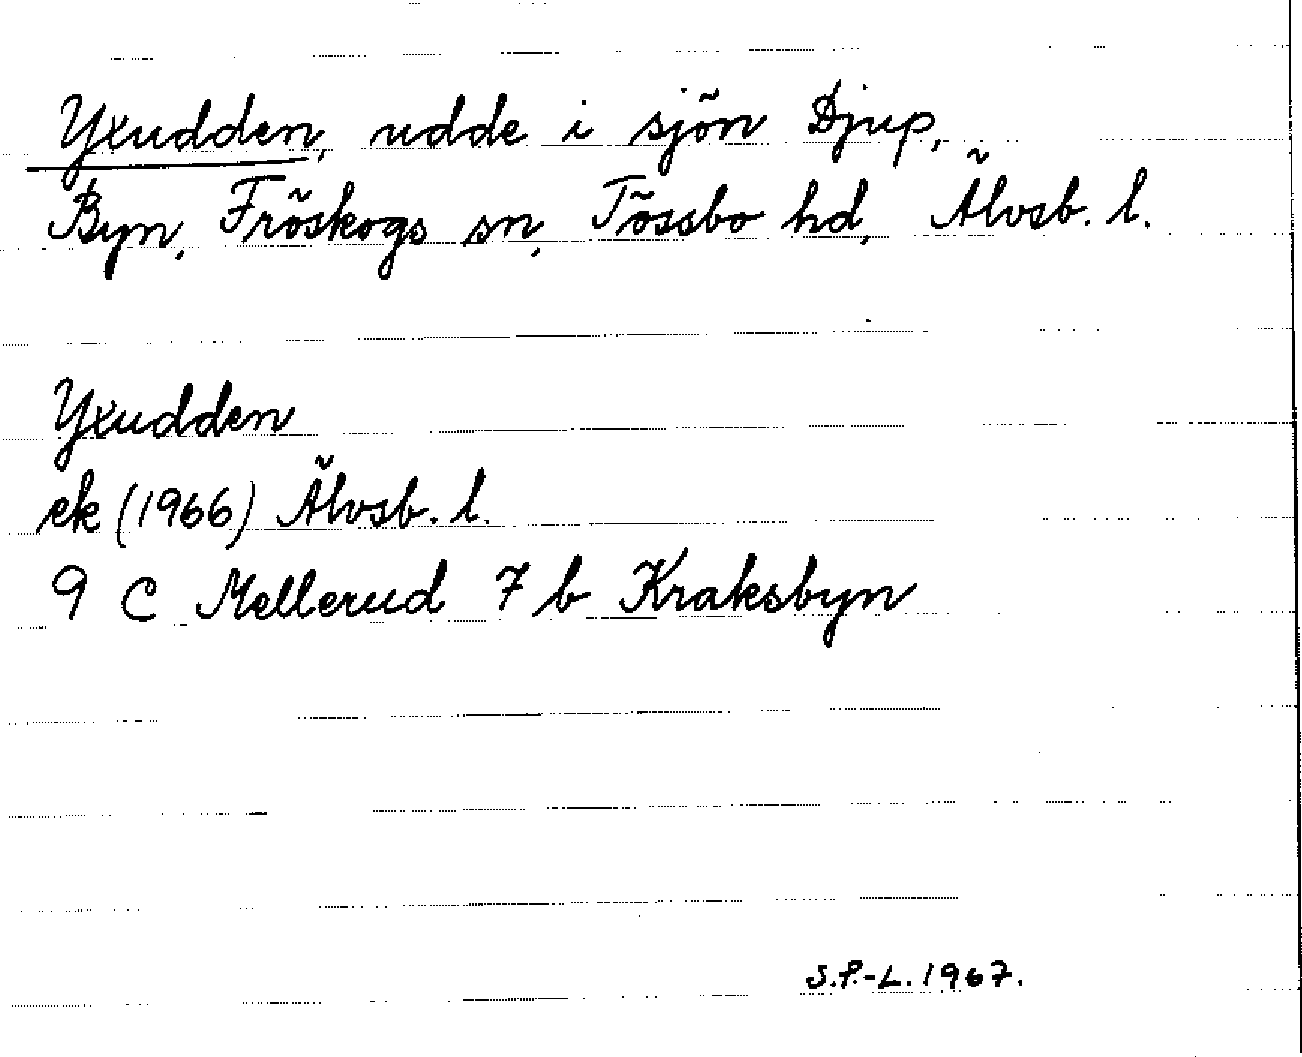 Yxudden, udde i sjön Djup,
Byn, Fröskogs sn, Tössbo hd, Älvsb. l.
Yxudden
ek (1966) Älvsb. l.
9 C Mellerud 7 b Kraksbyn
S.P.-L. 1967.